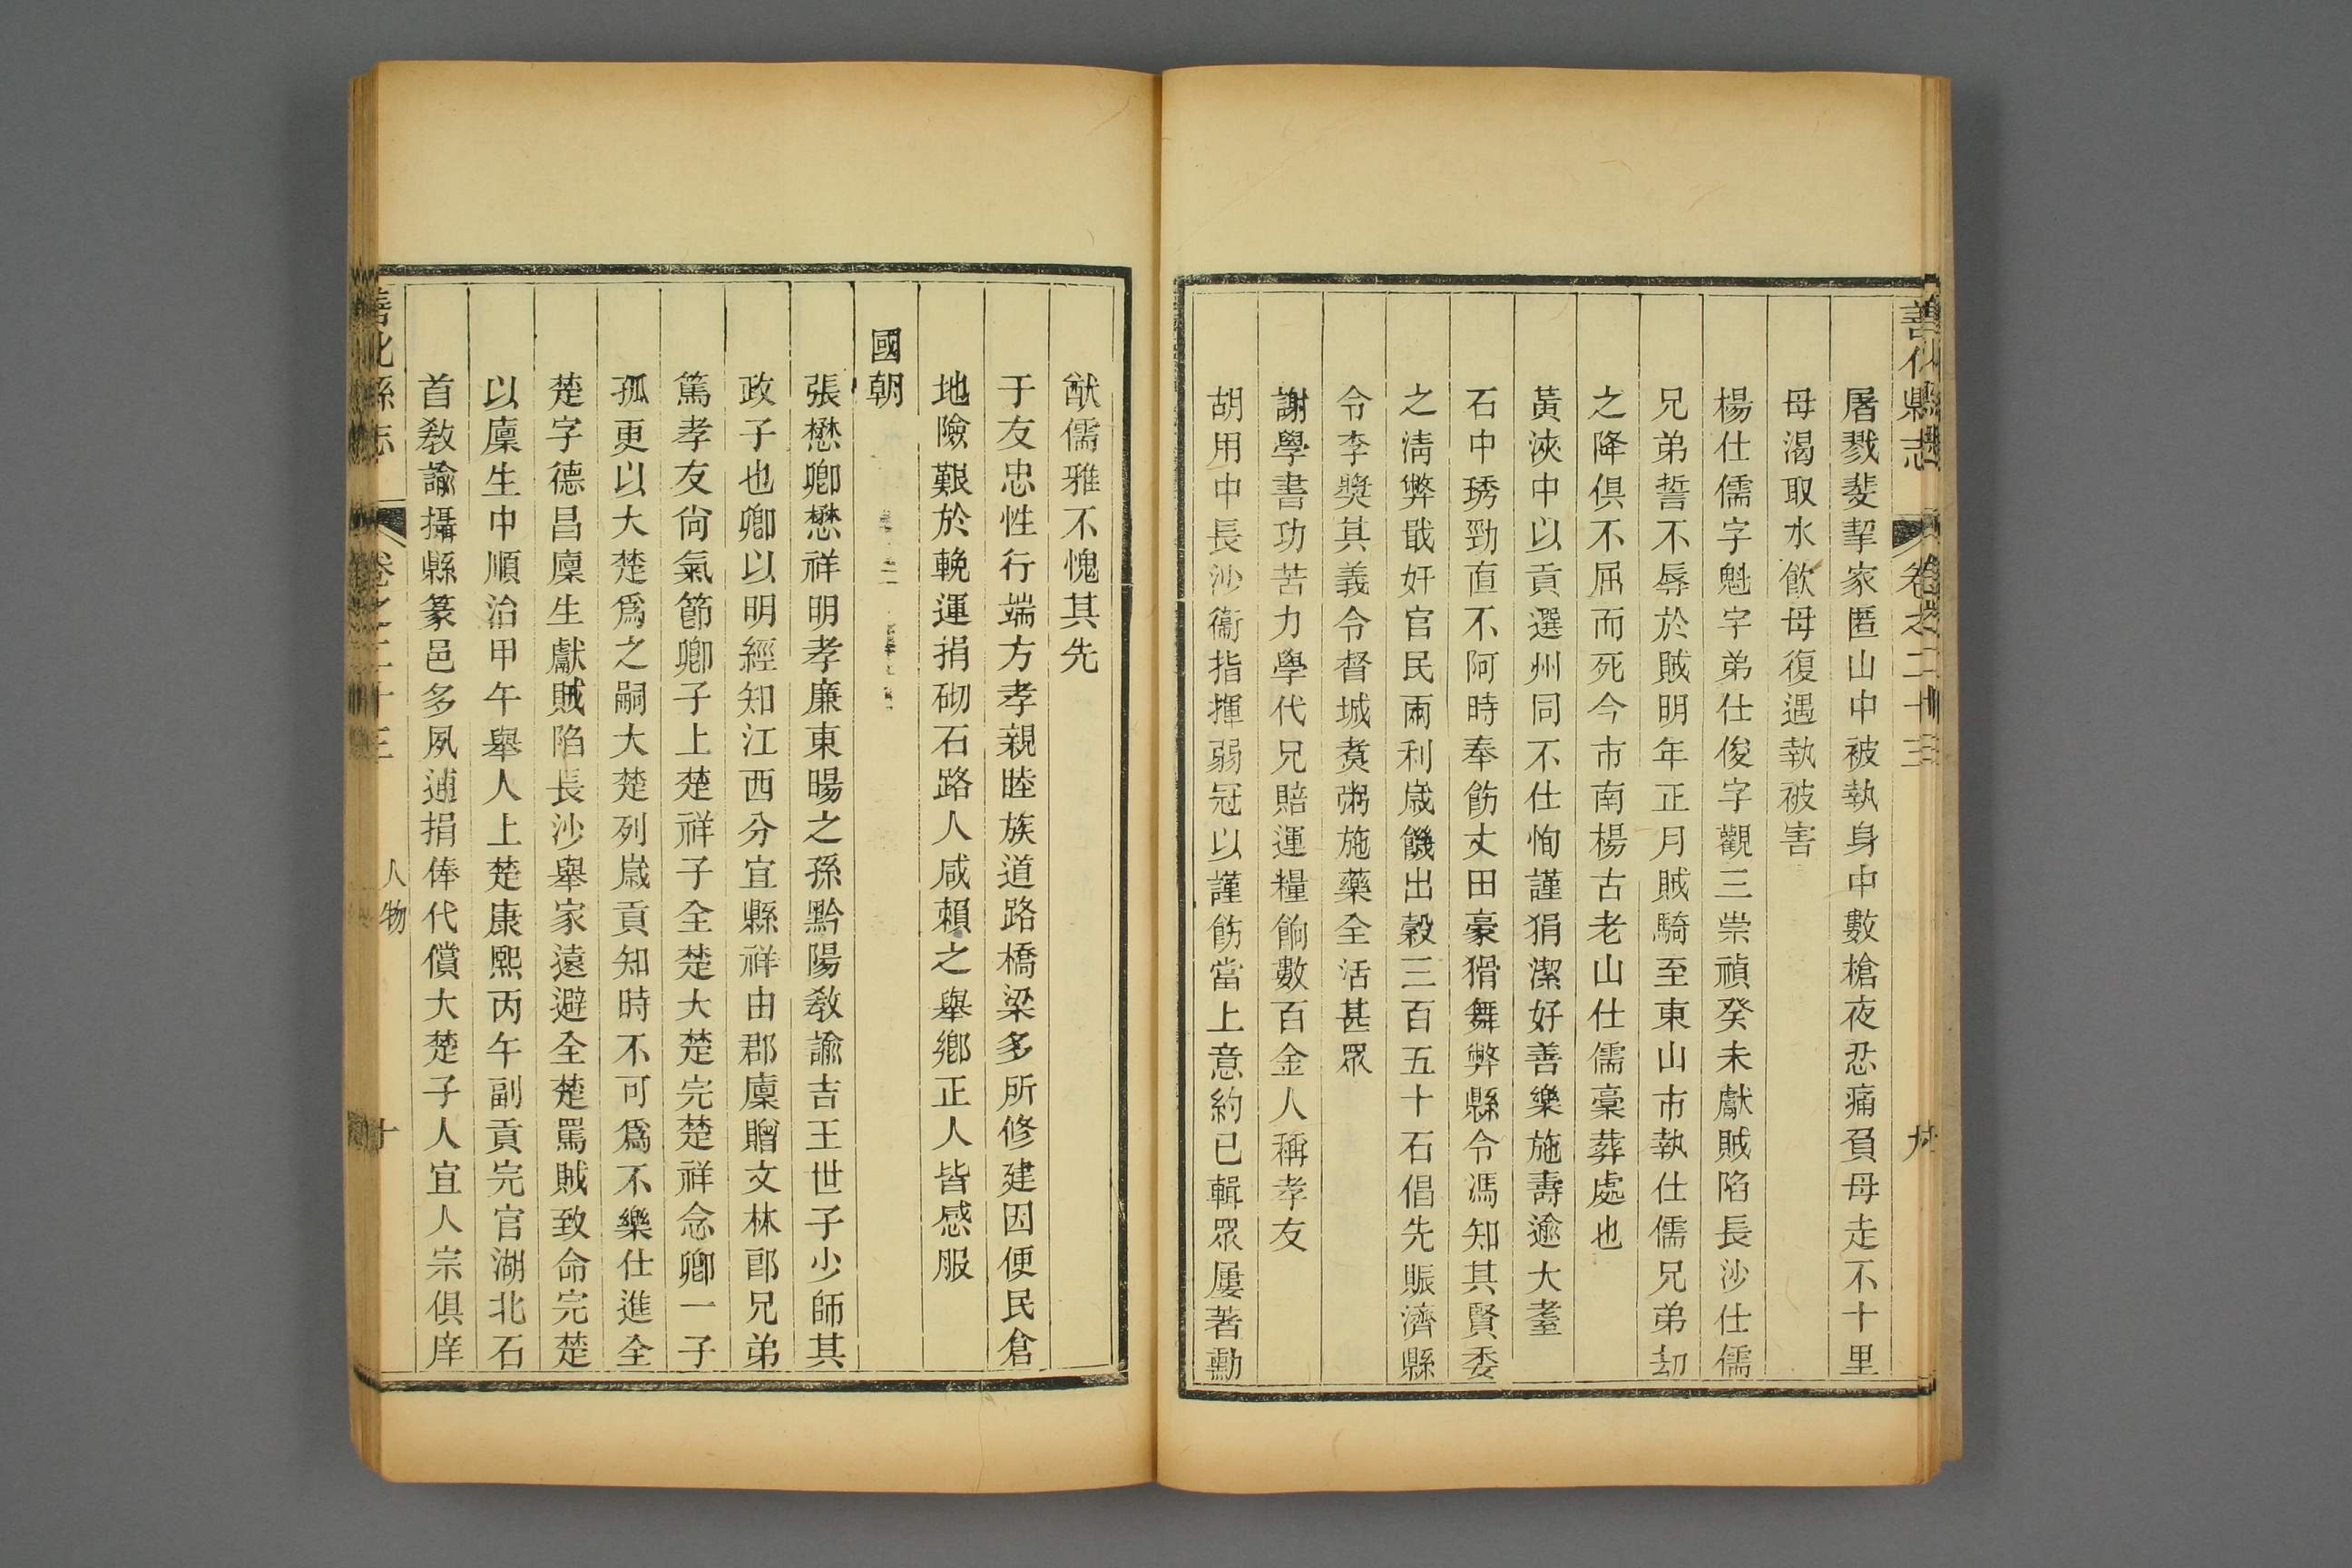 善化縣志 卷之二十三
屠戮斐挈家匿山中被執身中數槍夜忍痛負母走不十里
母渴取水飲母復遇執被害
楊仕儒字魁宇弟仕俊字觀三崇禎癸未獻賊陷長沙仕儒
兄弟誓不辱於賊明年正月賊騎至東山市執仕儒兄弟刧
之降俱不屈而死今市南楊古老山仕儒藁葬處也
黃浹中以貢選州同不仕恂謹狷潔好善樂施壽逾大耋
石中琇勁直不阿時奉飭丈田豪猾舞弊縣令馮知其賢委
之清弊戢奸官民兩利歲饑出穀三百五十石倡先賑濟縣
令李獎其義令督城煑粥施藥全活甚眾
謝學書功苦力學代兄賠運糧餉數百金人稱孝友
胡用中長沙衞指揮弱冠以謹飭當上意約已輯眾屢著勳
猷儒雅不愧其先
于友忠性行端方孝親睦族道路橋梁多所修建因便民倉
地險艱於輓運捐砌石路人咸賴之舉鄉正人皆感服
國朝
張懋卿懋祥明孝廉東暘之孫黔陽教諭吉王世子少師其
政子也卿以明經知江西分宜縣祥由郡廩贈文林郎兄弟
篤孝友尙氣節卿子上楚祥子全楚大楚完楚祥念卿一子
孤更以大楚爲之嗣大楚列歲貢知時不可爲不樂仕進全
楚字德昌廩生獻賊陷長沙舉家遠避全楚罵賊致命完楚
以廩生中順治甲午舉人上楚康熙丙午副貢完官湖北石
首教諭攝縣篆邑多夙逋捐俸代償大楚子人宜人宗俱庠
善化縣志 卷之二十三 人物 十